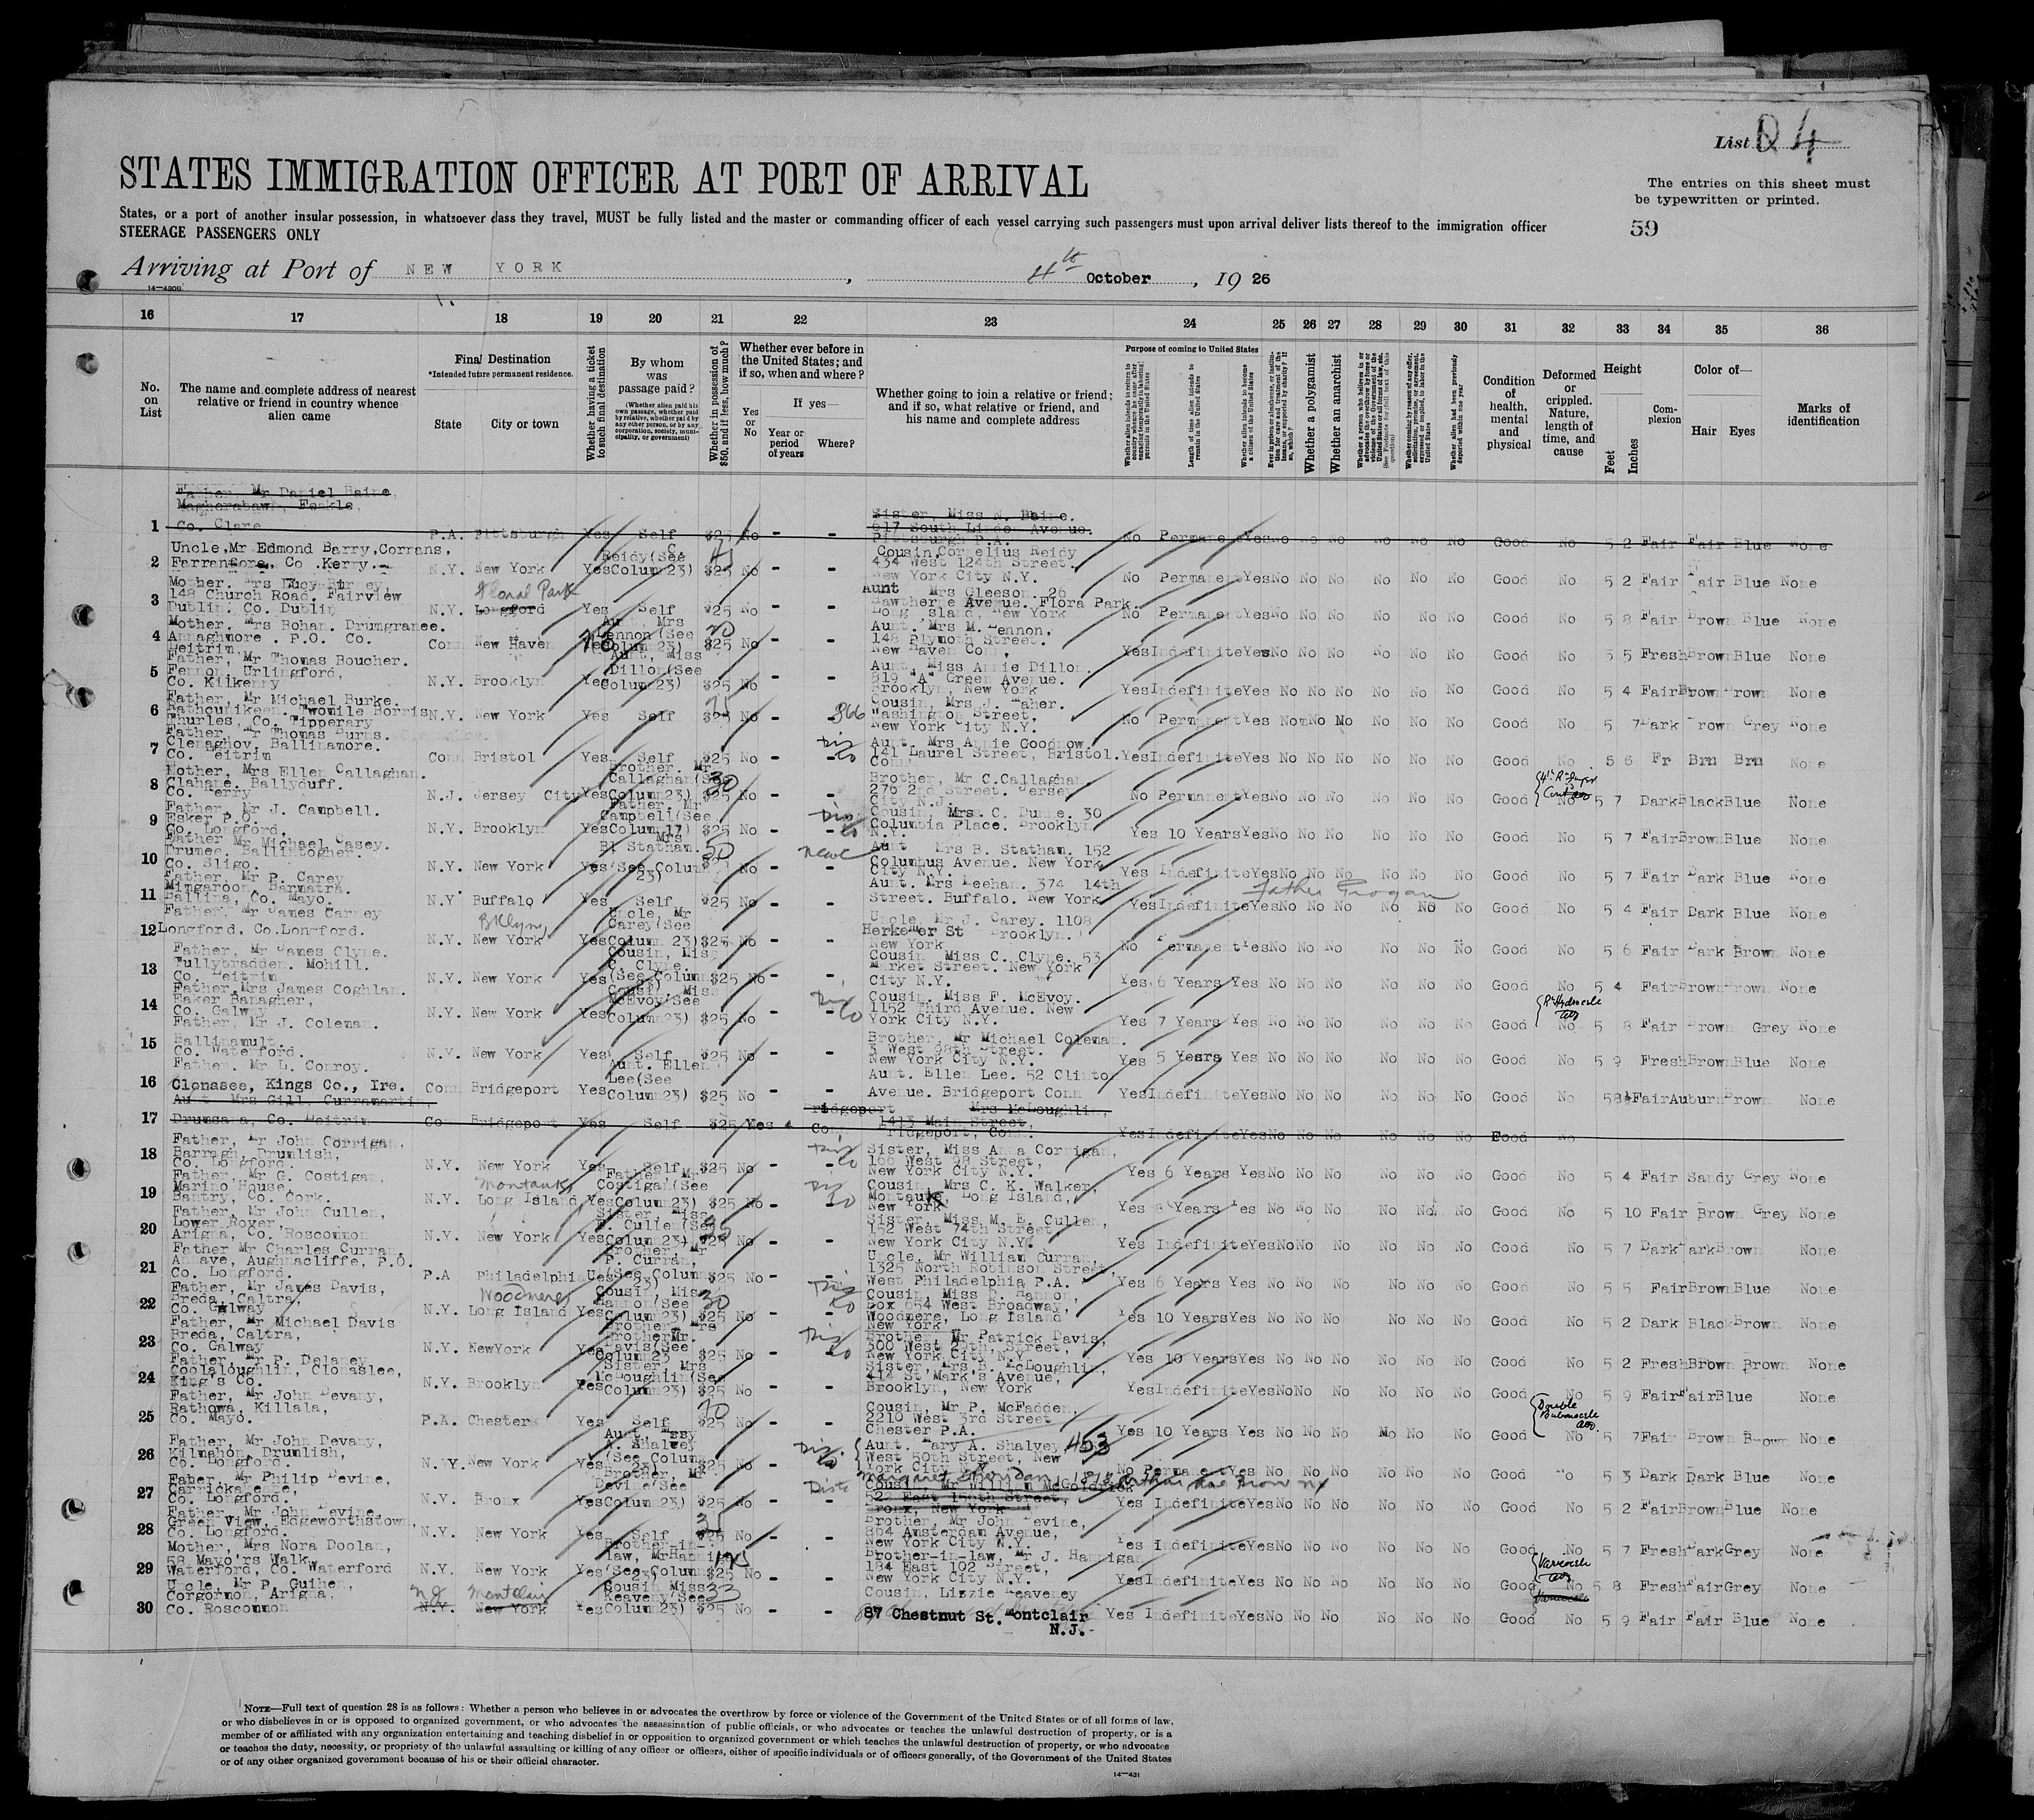 List Q 4
STATES IMMIGRATION OFFICER AT PORT OF ARRIVAL
The entries on this sheet must
be typewritten or printed.
States, or a port of another insular possession, in whatsoever class they travel, MUST be fully listed and the master or commanding officer of each vessel carrying such passengers must upon arrival deliver lists thereof to the immigration officer
STEERAGE PASSENGERS ONLY
59
Arriving at Port of NEW YORK, 4th October, 19 26
14—430B
16 17 18 19 20 21 22 23 24 25 26 27 28 29 30 31 32 33 34 35 36
No. on List
The name and complete address of nearest relative or friend in country whence alien came
Final Destination
*Intended future permanent residence.
State
City or town
Whether having a ticket to such final destination
By whom was passage paid?
(Whether alien paid his own passage, whether paid by relative, whether paid by any other person, or by any corporation, society, municipality, or government)
Whether in possession of $50, and if less, how much?
Whether ever before in the United States; and if so, when and where?
Yes or No
If yes—
Year or period of years
Where?
Whether going to join a relative or friend; and if so, what relative or friend, and his name and complete address
Purpose of coming to United States
Length of time alien intends to remain in the United States
Whether a polygamist
Whether an anarchist
Condition of health, mental and physical
Deformed or crippled. Nature, length of time, and cause
Height
Feet
Inches
Complexion
Color of—
Hair
Eyes
Marks of identification
Father, Mr Daniel Baine,
Magherabawn, Feakle,
1 Co. Clare P.A. Pittsburgh Yes Self $25 No - - Sister, Miss N. Baine. 617 South Linden Avenue. Pittsburgh P.A. No Permanent Yes No No No No No No Good No 5 2 Fair Fair Blue None
Uncle, Mr Edmond Barry, Corrans,
2 Farrantore, Co. Kerry. N.Y. New York Yes Reidy (See Column 23) $25 No - - Cousin, Cornelius Reidy 434 West 124th Street. New York City N.Y. No Permanent Yes No No No No No No Good No 5 2 Fair Fair Blue None
Mother, Mrs Lucy Birney,
148 Church Road, Fairview
3 Dublin, Co. Dublin N.Y. Longford Floral Park Yes Self $25 No - - Aunt Mrs Gleeson. 26 Hawthorne Avenue. Flora Park. Long Island, New York No Permanent Yes No No No No No No Good No 5 8 Fair Brown Blue None
Mother, Mrs Bohan. Drumgranee.
4 Annaghmore. P.O. Co. Leitrim Conn New Haven Yes Aunt, Mrs Lennon (See Column 23) 20 $25 No - - Aunt, Mrs M. Lennon, 148 Plymoth Street. New Haven Conn, Yes Indefinite Yes No No No No No No Good No 5 5 Fresh Brown Blue None
Father, Mr Thomas Boucher.
5 Fennor, Urlingford, Co. Kilkenny N.Y. Brooklyn Yes Aunt, Miss Dillon (See Column 23) $25 No - - Aunt, Miss Annie Dillon. 819 "A" Green Avenue. Brooklyn, New York Yes Indefinite Yes No No No No No No Good No 5 4 Fair Brown Brown None
Father, Mr Michael Burke.
6 Twomile Borris Thurles, Co. Tipperary N.Y. New York Yes Self 75 $25 No - - Cousin, Mrs J. Maher. 366 Washington Street, New York City N.Y. No Permanent Yes No No No No No No Good No 5 7 Dark Brown Grey None
Father, Mr Thomas Burns.
7 Clenaghov, Ballinamore. Co. Leitrim Conn Bristol Yes Self $25 No - - Aunt Mrs Annie Goodnow 141 Laurel Street, Bristol. Conn Yes Indefinite Yes No No No No No No Good No 5 6 Fr Brn Brn None
Mother, Mrs Ellen Callaghan.
8 Clahane, Ballyduff. Co. Kerry N.J. Jersey City Yes Brother, Mr Callaghan (See Column 23) 30 $25 No - - Brother, Mr C. Callaghan 276 2nd Street. Jersey City N.J. No Permanent Yes No No No No No No Good No 5 7 Dark Black Blue None
Father, Mr J. Campbell.
9 Esker P.O. Co. Longford, N.Y. Brooklyn Yes Father, Mr Campbell (See Column 17) $25 No - - Cousin, Mrs C. Dunne. 30 Columbia Place. Brooklyn N.Y. Yes 10 Years Yes No No No No No No Good No 5 7 Fair Brown Blue None
Father Mr Michael Casey.
10 Drumee. Ballintogher. Co. Sligo. N.Y. New York Yes Mrs B. Statham. (See Column 23) 50 No - - Aunt Mrs B. Statham. 152 Columbus Avenue. New York City N.Y. Yes Indefinite Yes No No No No No No Good No 5 7 Fair Dark Blue None
Father, Mr P. Carey
11 Barnatra. Ballina, Co. Mayo. N.Y. Buffalo Yes Self $25 No - - Aunt, Mrs Meehan. 374 14th Street. Buffalo. New York Yes Indefinite Yes No No No No No No Good No 5 4 Fair Dark Blue None
Father, Mr James Carney
12 Longford, Co. Longford. N.Y. New York Bklyn Yes Uncle, Mr Carey (See Column 23) $25 No - - Uncle, Mr J. Carey. 1108 Herkemer St Brooklyn. New York No Permanent Yes No No No No No No Good No 5 6 Fair Dark Brown None
Father, Mr James Clyne.
13 Tullybradden. Mohill. Co. Leitrim N.Y. New York Yes Cousin, Miss C. Clyne. (See Column 23) $25 No - - Cousin, Miss C. Clyne. 53 Market Street. New York City N.Y. Yes 6 Years Yes No No No No No No Good No 5 4 Fair Brown Brown None
Father, Mrs James Coghlan.
14 Banagher, Co. Galway N.Y. New York Yes Cousin, Miss McEvoy (See Column 23) $25 No - - Cousin, Miss F. McEvoy. 1152 Third Avenue. New York City N.Y. Yes 7 Years Yes No No No No No No Good No 5 8 Fair Brown Grey None
Father, Mr J. Coleman.
15 Ballinamult. Co. Waterford. N.Y. New York Yes Self $25 No - - Brother, Mr Michael Coleman. 3 West 98th Street. New York City N.Y. Yes 5 Years Yes No No No No No No Good No 5 9 Fresh Brown Blue None
Father, Mr L. Conroy.
16 Clonasee, Kings Co., Ire. Conn Bridgeport Yes Aunt. Ellen Lee (See Column 23) $25 No - - Aunt. Ellen Lee. 52 Clinton Avenue. Bridgeport Conn Yes Indefinite Yes No No No No No No Good No 5 8½ Fair Auburn Brown None
Aunt Mrs Gill, Curramartin,
17 Drumsana, Co. Leitrim Co Bridgeport Yes Self $25 Yes Bridgeport Conn Mrs McLoughlin, 1413 Main Street, Bridgeport, Conn. Yes Indefinite Yes No No No No No No Good No
Father, Mr John Corrigan,
18 Barragh, Drumlish, Co. Longford. N.Y. New York Yes Self $25 No - - Sister, Miss Anna Corrigan, 166 West 98 Street, New York City N.Y. Yes 6 Years Yes No No No No No No Good No 5 4 Fair Sandy Grey None
Father, Mr G. Costigan,
19 Marino House, Bantry, Co. Cork. N.Y. Montauk Long Island Yes Father, Mr Costigan (See Column 23) $25 No - - Cousin, Mrs C. K. Walker, Montauk, Long Island, New York Yes 8 Years Yes No No No No No No Good No 5 10 Fair Brown Grey None
Father, Mr John Cullen,
20 Lower Rover, Arigna, Co. Roscommon N.Y. New York Yes Sister, Miss E. Cullen (See Column 23) $25 No - - Sister, Miss M. E. Cullen, 152 West 74th Street New York City N.Y. Yes Indefinite Yes No No No No No No Good No 5 7 Dark Dark Brown None
Father Mr Charles Curran,
21 Annave, Aughnacliffe, P.O. Co. Longford. P.A Philadelphia Yes Brother, Mr P. Curran, (See Column 23) $25 No - - Uncle, Mr William Curran, 1325 North Robinson Street, West Philadelphia P.A. Yes 6 Years Yes No No No No No No Good No 5 5 Fair Brown Blue None
Father, Mr James Davis,
22 Breda, Caltra, Co. Galway N.Y. Woodmere Long Island Yes Cousin, Miss Hannon (See Column 23) 30 $25 No - - Cousin, Miss R. Hannon, Box 654 West Broadway, Woodmere, Long Island New York Yes 10 Years Yes No No No No No No Good No 5 2 Dark Black Brown None
Father, Mr Michael Davis
23 Breda, Caltra, Co. Galway N.Y. New York Yes Brother Mr. Davis (See Column 23 $25 No - - Brother, Mr Patrick Davis, 300 West 29th, Street, New York City N.Y Yes 10 Years Yes No No No No No No Good No 5 2 Fresh Brown Brown None
Father, Mr P. Delaney
24 Coolaloughlin, Clonaslee, King's Co. N.Y. Brooklyn Yes Sister, Mrs McLoughlin (See Column 23) $25 No - - Sister, Mrs B. McLoughlin, 414 St Mark's Avenue, Brooklyn, New York Yes Indefinite Yes No No No No No No Good No 5 9 Fair Fair Blue None
Father, Mr John Devany,
25 Rathowa, Killala, Co. Mayo. P.A. Chester Yes Self 70 $25 No - - Cousin, Mr P. McFadden, 2210 West 3rd Street Chester P.A. Yes 10 Years Yes No No No No No No Good No 5 7 Fair Brown Brown None
Father, Mr John Devany,
26 Kilmahon, Drumlish, Co. Longford. N.Y. New York Yes Aunt, A. Shalvey (See Column 23) $25 No - - Aunt. Mary A. Shalvey, 453 West 50th Street, New York City N.Y. No Permanent Yes No No No No No No Good No 5 3 Dark Dark Blue None
Father, Mr Philip Devine,
27 Co. Longford. N.Y. Bronx Yes Brother, Mr Devine (See Column 23) $25 No - - Margaret Sheridan Cousin, Mr William McGoldrick 522 East 156th Street, Bronx, New York Yes Indefinite Yes No No No No No No Good No 5 2 Fair Brown Blue None
Father, Mr John Devine,
28 Green View, Edgeworthstown, Co. Longford. N.Y. New York Yes Self 35 $25 No - - Brother, Mr John Devine, 864 Amsterdam Avenue, New York City N.Y. Yes Indefinite Yes No No No No No No Good No 5 7 Fresh Dark Grey None
Mother, Mrs Nora Doolan,
29 58 Mayo'rs Walk, Waterford, Co. Waterford N.Y. New York Yes Brother-in-law, Mr Hannigan (See Column 23) $25 No - - Brother-in-law, Mr J. Hannigan 184 East 102 Street, New York City N.Y. Yes Indefinite Yes No No No No No No Good No 5 8 Fresh Fair Grey None
Uncle, Mr P. Guihen,
30 Corgormon, Arigna. Co. Roscommon N.J. Montclair N.Y. New York Yes Cousin Miss Keaveny (See Column 23) 33 $25 No - - Cousin, Lizzie Keaveney 87 Chestnut St. Montclair N.J. Yes Indefinite Yes No No No No No No Good No 5 9 Fair Fair Blue None
NOTE—Full text of question 28 is as follows: Whether a person who believes in or advocates the overthrow by force or violence of the Government of the United States or of all forms of law,
or who disbelieves in or is opposed to organized government, or who advocates the assassination of public officials, or who advocates or teaches the unlawful destruction of property, or is a
member of or affiliated with any organization entertaining and teaching disbelief in or opposition to organized government or which teaches the unlawful destruction of property, or who advocates
or teaches the duty, necessity, or propriety of the unlawful assaulting or killing of any officer or officers, either of specific individuals or of officers generally, of the Government of the United States
or of any other organized government because of his or their official character.
14—431